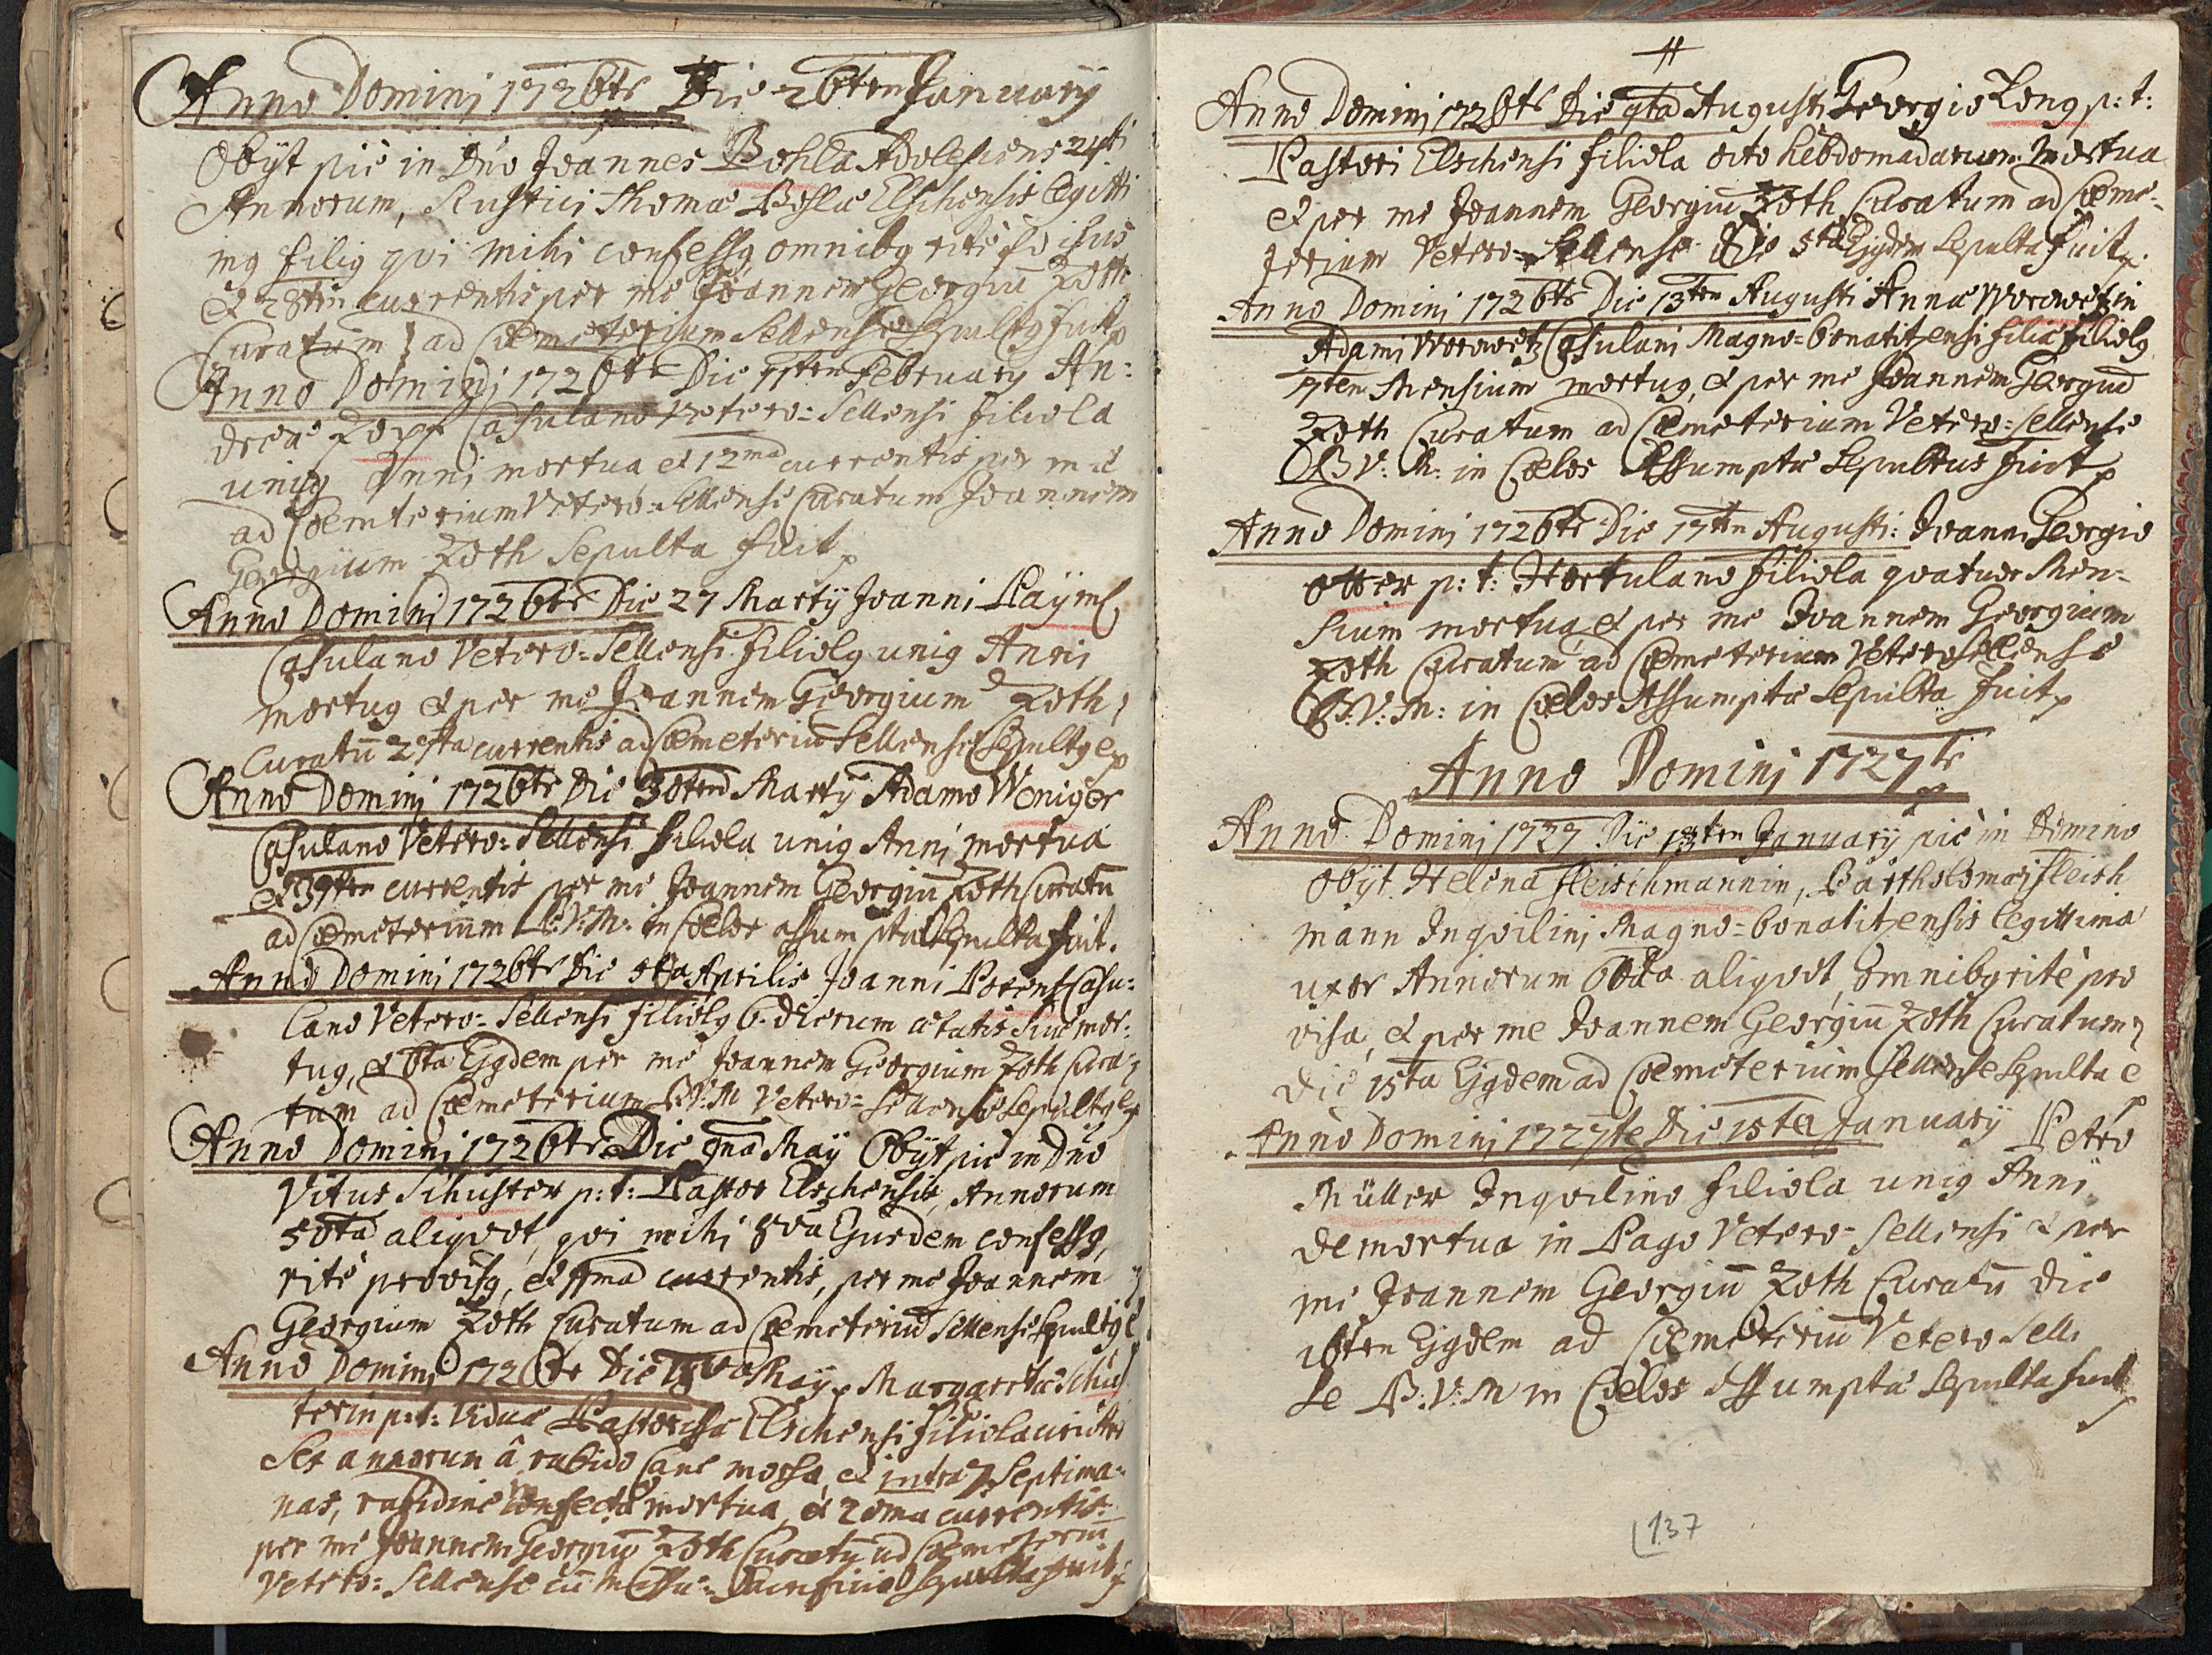 Anno Domini 1726te Die 26ten January
Obÿt pie in Dno Joannes Pohla Adolescens 24ti
Annorum, Rustici Thomæ Pohlæ Elschensis legitti
mg filig qvi mihi confessg omnibg rite
et 28ten currentis per me Joannem Georgiū Zoth
Curatum ad Cœmeterium Sellense Sepultg fuit
Anno Domini 1726te Die 11ten February An:
dreæ Zopf Casulano Vetero=Sellensi filiola
unig Anni mortua et 12ma currentis per me
ad Cœmterium Vetero=Sellense Curatum Joannem
Georgium Zoth Sepulta fuit
Anno Domini 1726te Die 27 Martÿ Joanni Paÿml
Casulano Vetero=Sellensi filiolg unig Anni
mortug et per me Joannem Georgium Zoth
Curatū currentis ad Cœmeteriū Sellense Sepultg e
Anno Domini 1726te Die 30ten Martÿ Adamo Weniger
Casulano Vetero=Sellensi filiola unig Anni mortua
et currentis per me Joannem Georgiū Zoth Curatū
ad Cœmeterium B:V:M: in Cœlos assumptæ Sepulta fuit.
Anno Domini 1726te Die 5ta Aprilis Joanni Porent Casu:
lano Vetero=Sellensi filiolg 6. dierum ætatis suæ mor:
tug, et 6ta Ejgdem per me Joannem Georgium Zoth Cura
tum ad Cœmeterium B:V:M Vetero=Sellense Sepultg e
Anno Domini 1726te Die 9na Maÿ Obÿt pie in Dno
Vitus Schuster p:t: Pastor Elschensis, Annorum
50ta aliqvot, qvi mihi 8va Ejusdem confessg,
rite provisg, et 11ma currentis, per me Joannem
Georgium Zoth Curatum ad Cœmeteriū Sellense Sepultg e
Anno Domini 1726te Die 18va Maÿ Margaretæ Schus
terin p:t: Viduæ Pastorissæ Elschensi filiola
Sex annorum â rabido Cane morsa, et intra 7. Septima:
nas, rabidine confecta mortua, et 20ma currentis
per me Joannem Georgiū Zoth Curatū ad Cœmeteriū
Vetero=Sellense cū Missæ=Sacrificio Sepulta fuit
Anno Domini 1726te Die 4ta Augusti Georgio Long p:t:
Pastori Elschensi filiola octo hebdomadarum Mortua
et per me Joannem Georgiū Zoth Curatum ad Cœme=
terium Vetero=Sellense Die 5ta Ejgdem Sepulta fuit
Anno Domini 1726te Die 13ten Augusti Annæ Worowetzin
Adami Worowetz Casulani Magno=Gonatitzensi filia filiolg
7ten Mensium mortug, et per me Joannem Georgiū
Zoth Curatum ad Cœmeterium Vetero=Sellense
B:V:M: in Cœlos Assumptæ Sepultus fuit
Anno Domini 1726te Die 17ten Augusti: Joann Georgio
Otter p:t: Hortulano filiola qvatuor Men=
sium mortug et per me Joannem Georgium
Zoth Curatum ad Cœmeterium Veterosellense
B:V:M: in Cœlos Assumptæ Sepulta fuit
Anno Domini 1727te
Anno Domini 1727 Die 13ten January pie in Domino
Obÿt Helena Fleischmannin, Bartholomæj Fleisch
mann Inqvilini Magno=Gonatitzensis legittima
uxor Annorum 60ta aliqvot, omnibg rite pro
visa, et per me Joannem Georgiū Zoth Curatum
Die 15ta Ejgdem ad Cœmeterium Sellense Sepulta e
Anno Domini 1727te Die 15ta January Petro
Müller Inqvilino filiola unig Anni
demortua in Pago Vetero=Sellensi et per
me Joannem Georgiū Zoth Curatū Die
16ten Ejgdem ad Cœmeteriū Vetero Sellen
se B:V:M in Cœlos Assumptæ Sepulta fuit
137